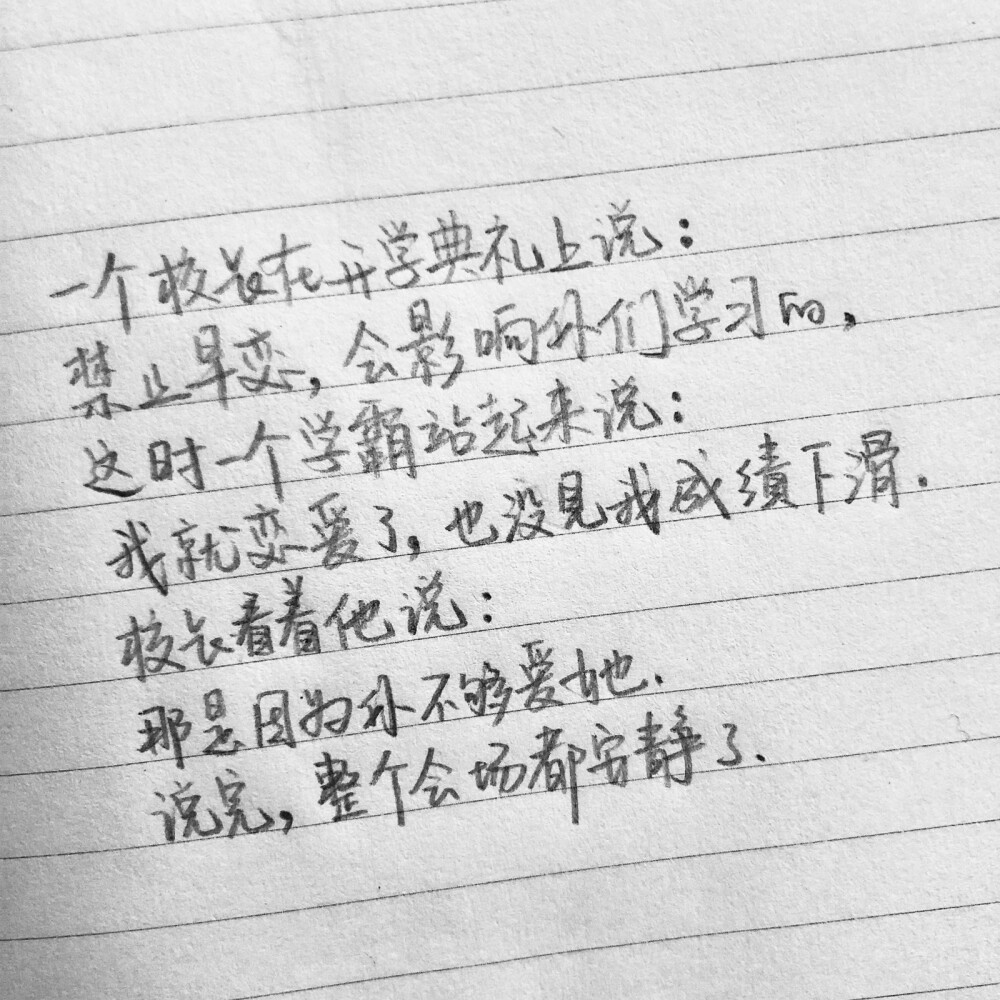 一个校长在开学典礼上说：
禁止早恋，会影响你们学习的，
这时一个学霸站起来说：
我就恋爱了，也没见我成绩下滑.
校长看着他说：
那是因为你不够爱她.
说完，整个会场都安静了.